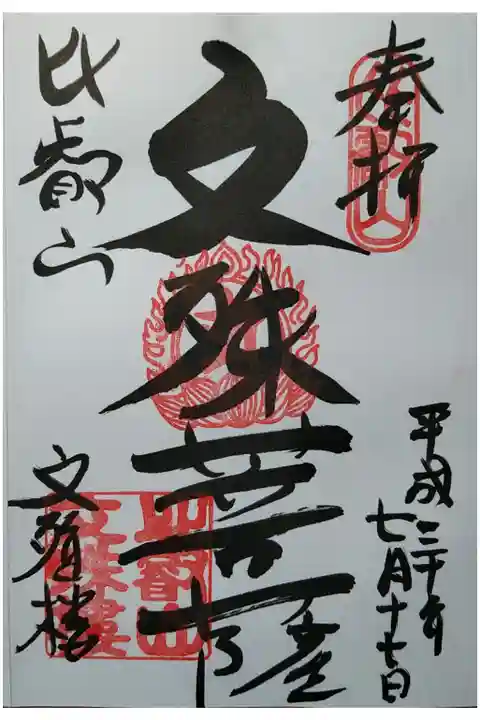 奉拝
平成三十年
七月十七日
文殊菩薩
比叡山
文殊楼
比叡山
文殊樓